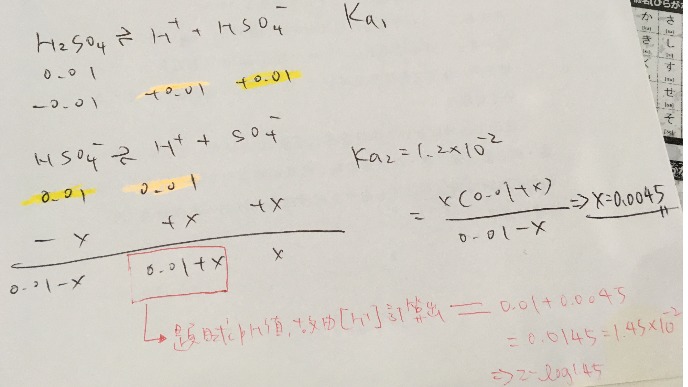 H2SO4 ⇌ H+ + HSO4- Ka1
0.01
-0.01 +0.01 +0.01
HSO4- ⇌ H+ + SO4-
0.01 0.01
-x +x +x
0.01-x 0.01+x x
Ka2=1.2×10-2
= x(0.01+x) / 0.01-x ⇒ x=0.0045
題時求pH值,故由[H+]計算出 = 0.01+0.0045
=0.0145=1.45×10-2
⇒2-log1.45
か さ
き し
く す
せ
そ